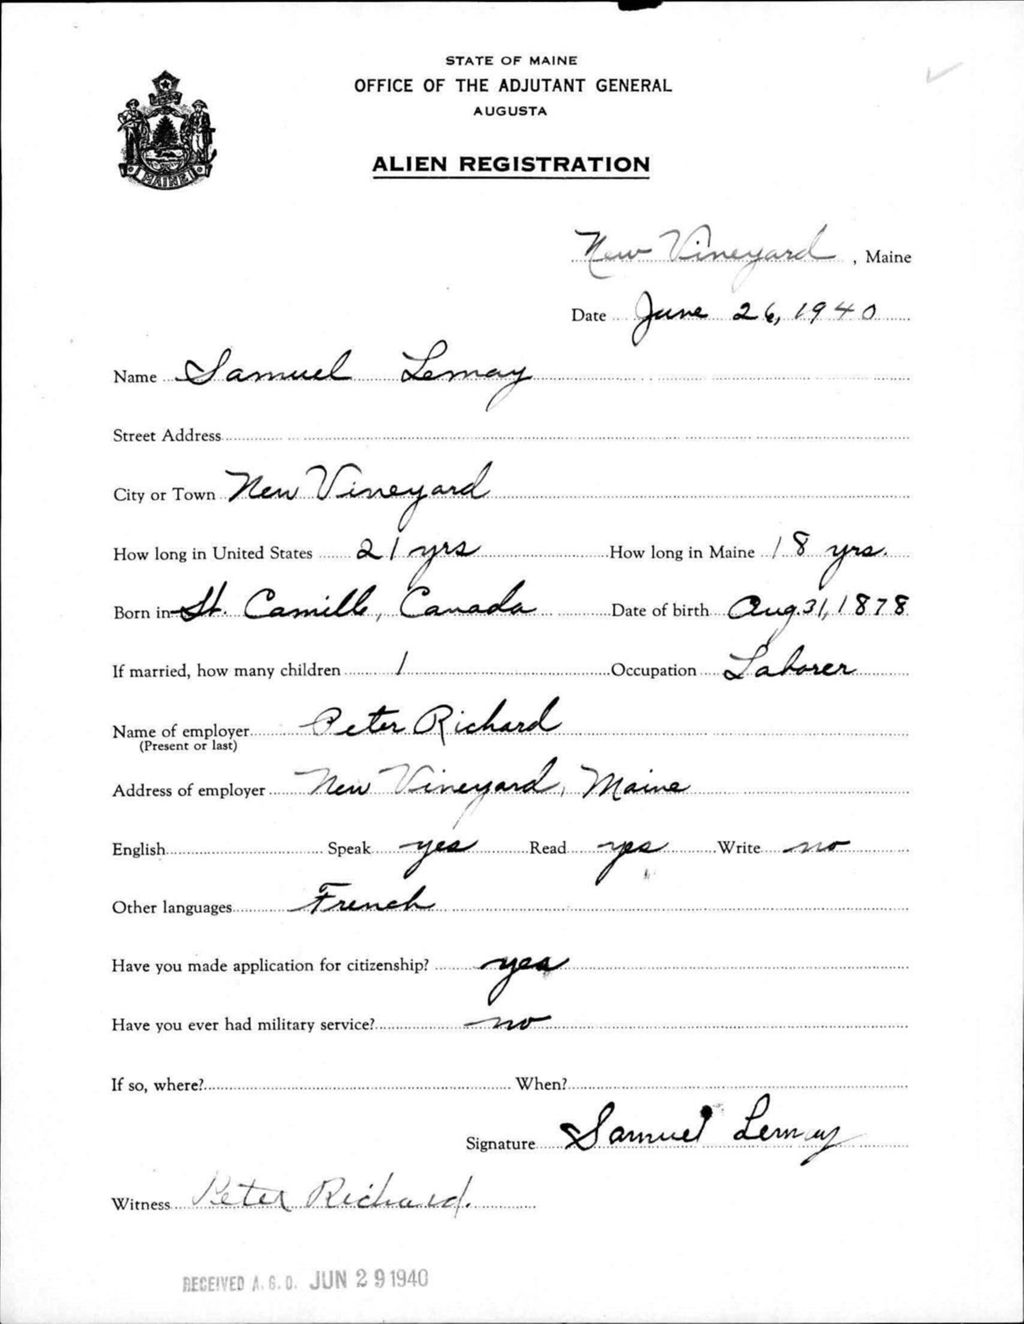 STATE OF MAINE
OFFICE OF THE ADJUTANT GENERAL
AUGUSTA
MAINE
ALIEN REGISTRATION
New Vineyard, Maine
Date June 26, 1940
Name Samuel Lemay
Street Address
City or Town New Vineyard
How long in United States 21 yrs How long in Maine 18 yrs.
Born in St. Camille, Canada Date of birth Aug. 31, 1878
If married, how many children 1 Occupation Laborer
Name of employer Peter Richard
(Present or last)
Address of employer New Vineyard, Maine
English Speak yes Read yes Write no
Other languages French
Have you made application for citizenship? yes
Have you ever had military service? no
If so, where? When?
Signature Samuel Lemay
Witness Peter Richard.
RECEIVED A.G.O. JUN 29 1940